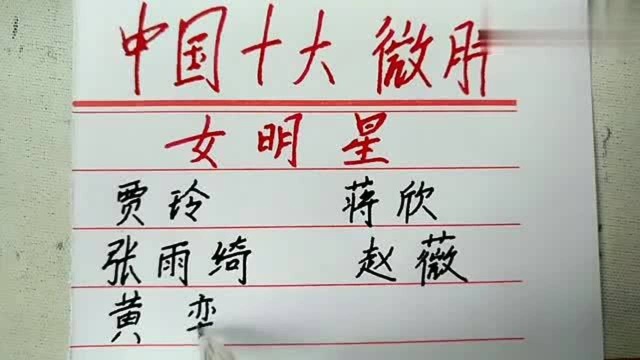 中国十大微胖
女明星
贾玲 蒋欣
张雨绮 赵薇
黄